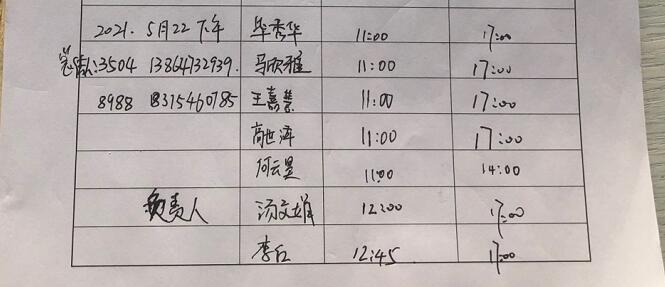 2021. 5月22下午 毕秀华 11:00 17:00
:3504 13864732939. 马欣雅 11:00 17:00
8988 18315460785 王嘉慧 11:00 17:00
高世泽 11:00 17:00
何云昱 11:00 14:00
负责人 汤文雄 12:00 17:00
李红 12:45 17:00